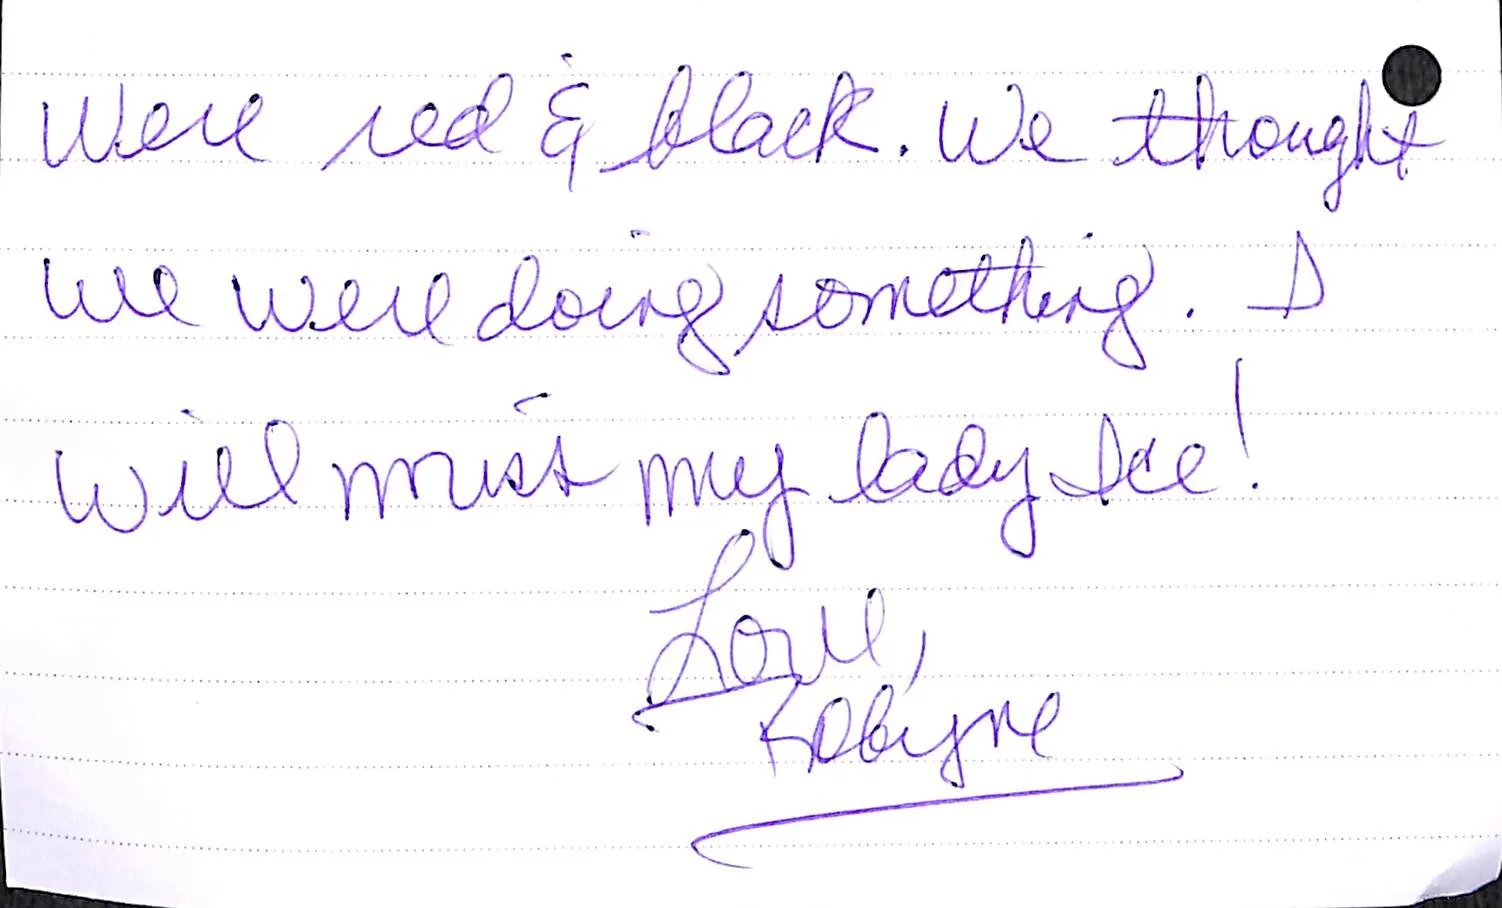 Were red & black. We thought
we were doing something. I
will miss my lady Ice!
Love,
Robyne